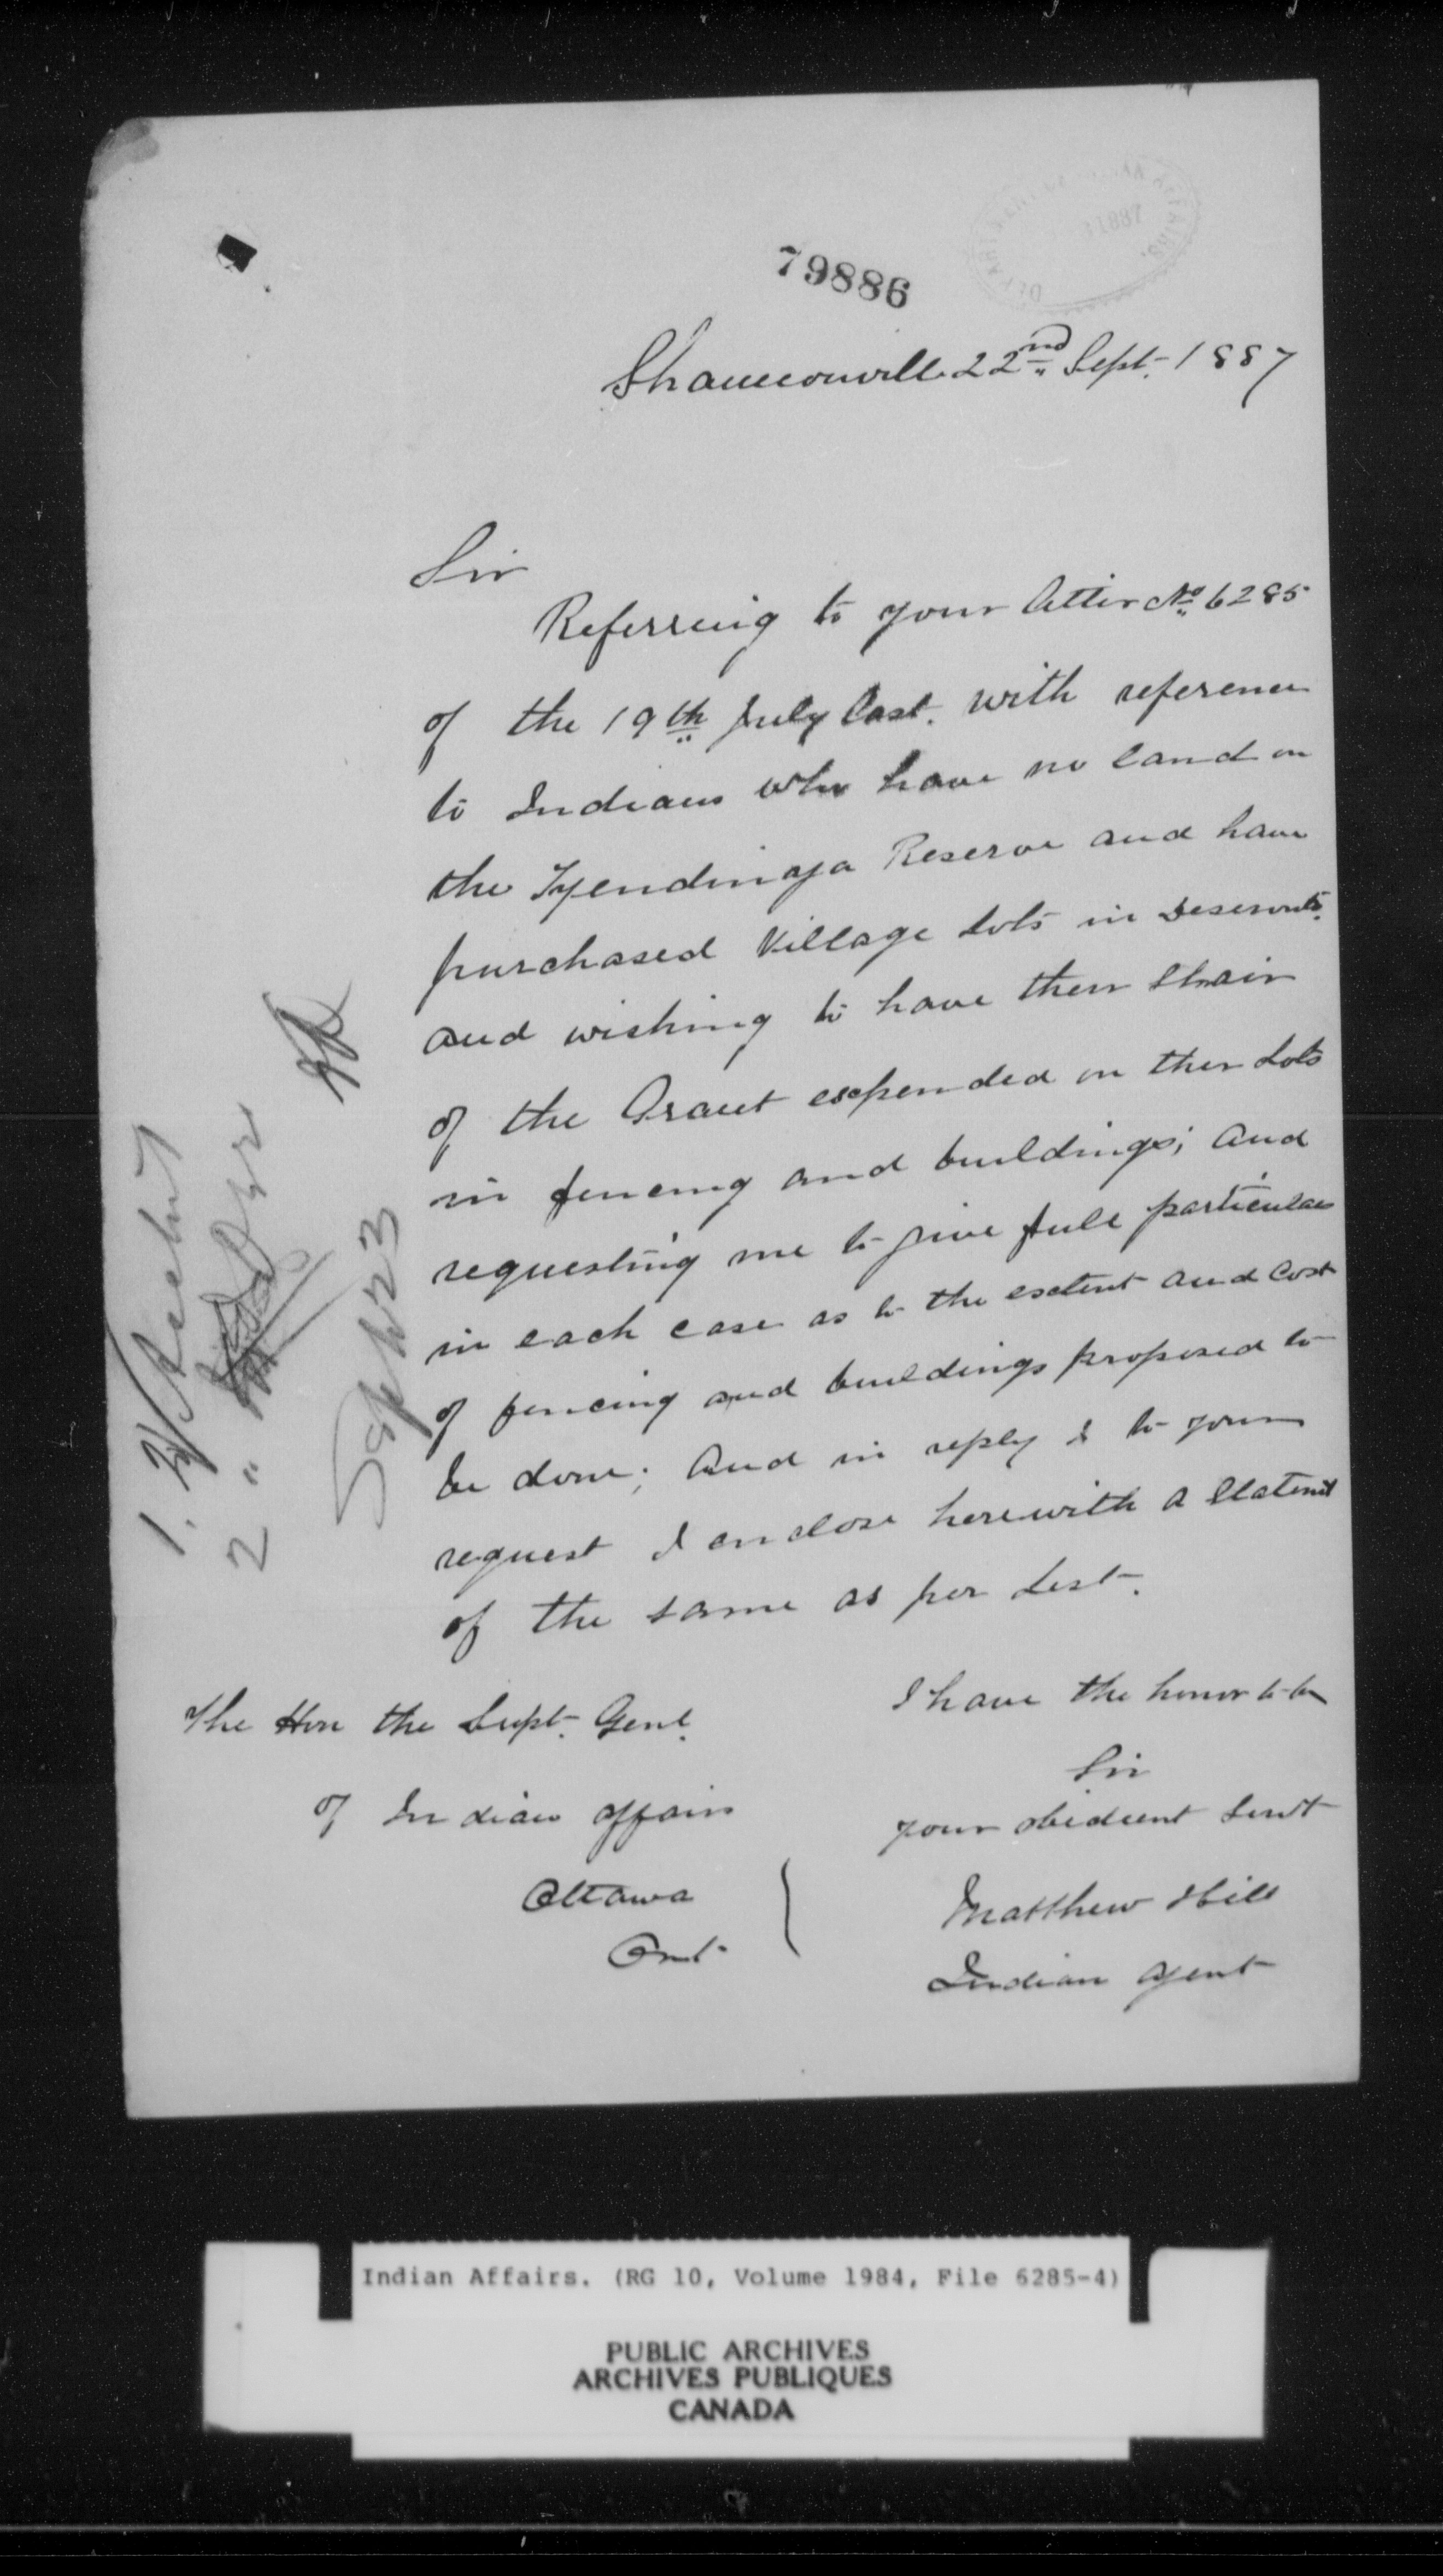 79886
Shannonville 22nd Sept. 1887
Sir
Referring to your letter No 6285
of the 19th July last. with reference
to Indians who have no land on
the Tyendinaga Reserve and have
purchased Village Lots in Deseronto.
and wishing to have their Shair
of the Grant expended on their Lots
in fencing and buildings; and
requesting me to give full particulars
in each case as to the extent and cost
of fencing and buildings proposed to
be done; and in reply to your
request I enclose herewith a Statemt
of the same as per List.
I have the honor to be
Sir
your obedient Servt
Matthew Hill
Indian Agent
The Hon the Supt. Genl.
of Indian Affairs
Ottawa
Ont.
1.
2 "
Sept 23
Indian Affairs. (RG 10, Volume 1984, File 6285-4)
PUBLIC ARCHIVES
ARCHIVES PUBLIQUES
CANADA